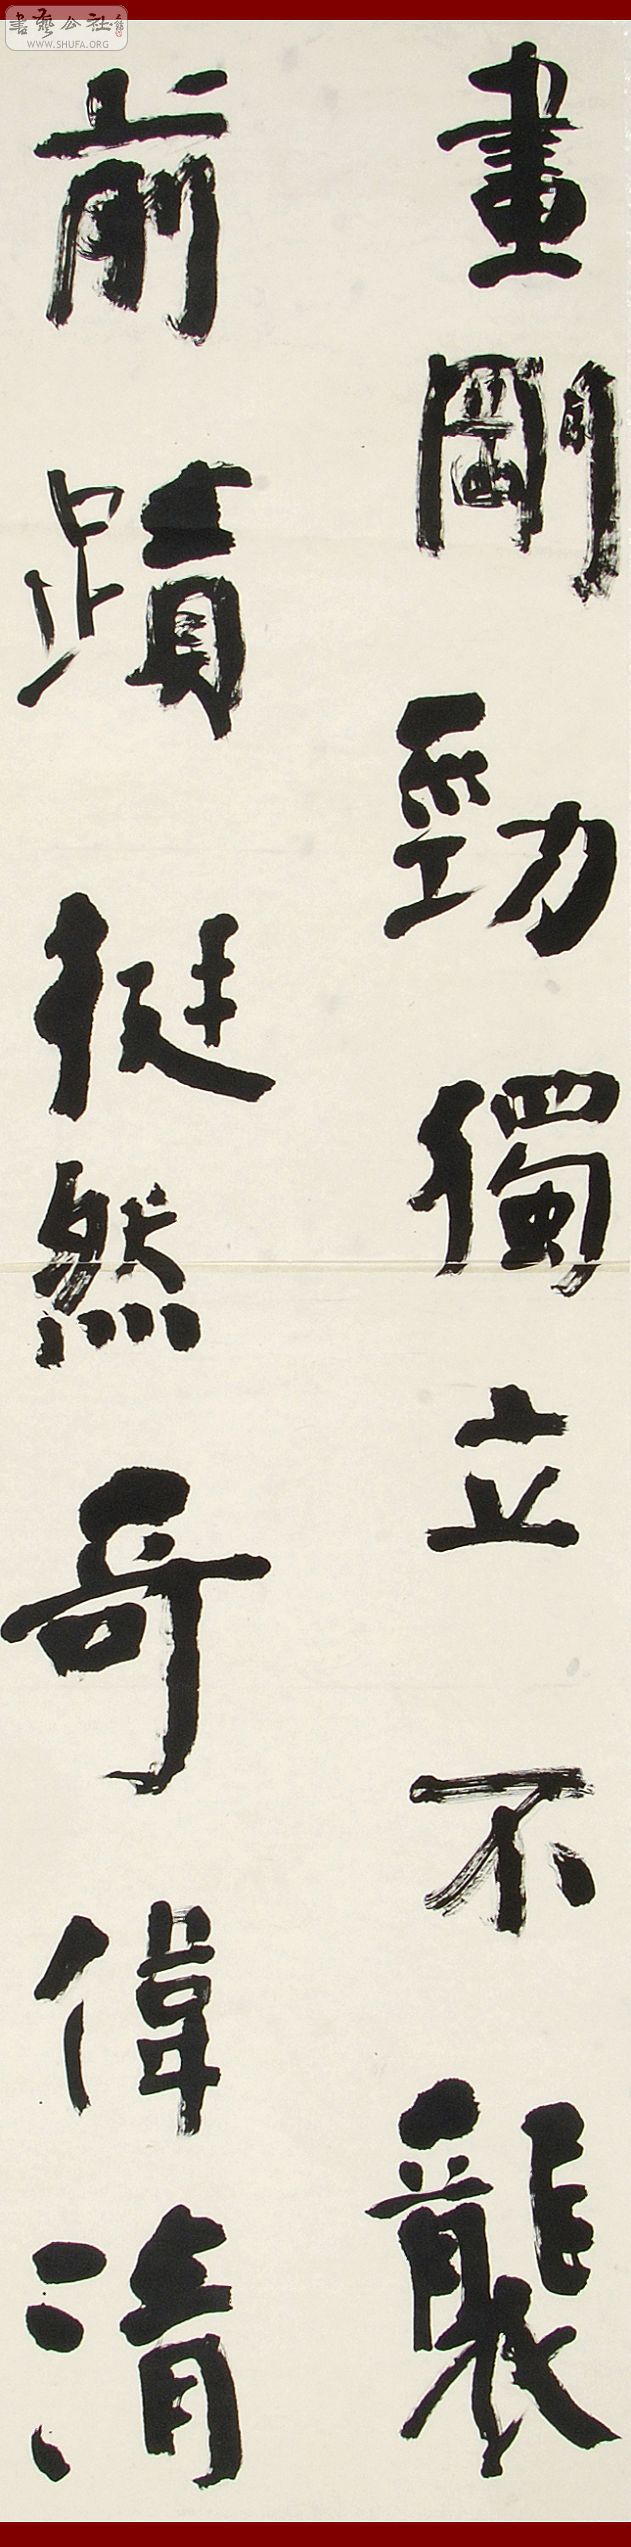 畫剛勁獨立不襲
前蹟挺然奇偉清
書藝公社
WWW.SHUFA.ORG